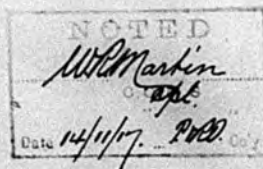 NOTED
W R Martin
Cpl.
Date 14/11/17.